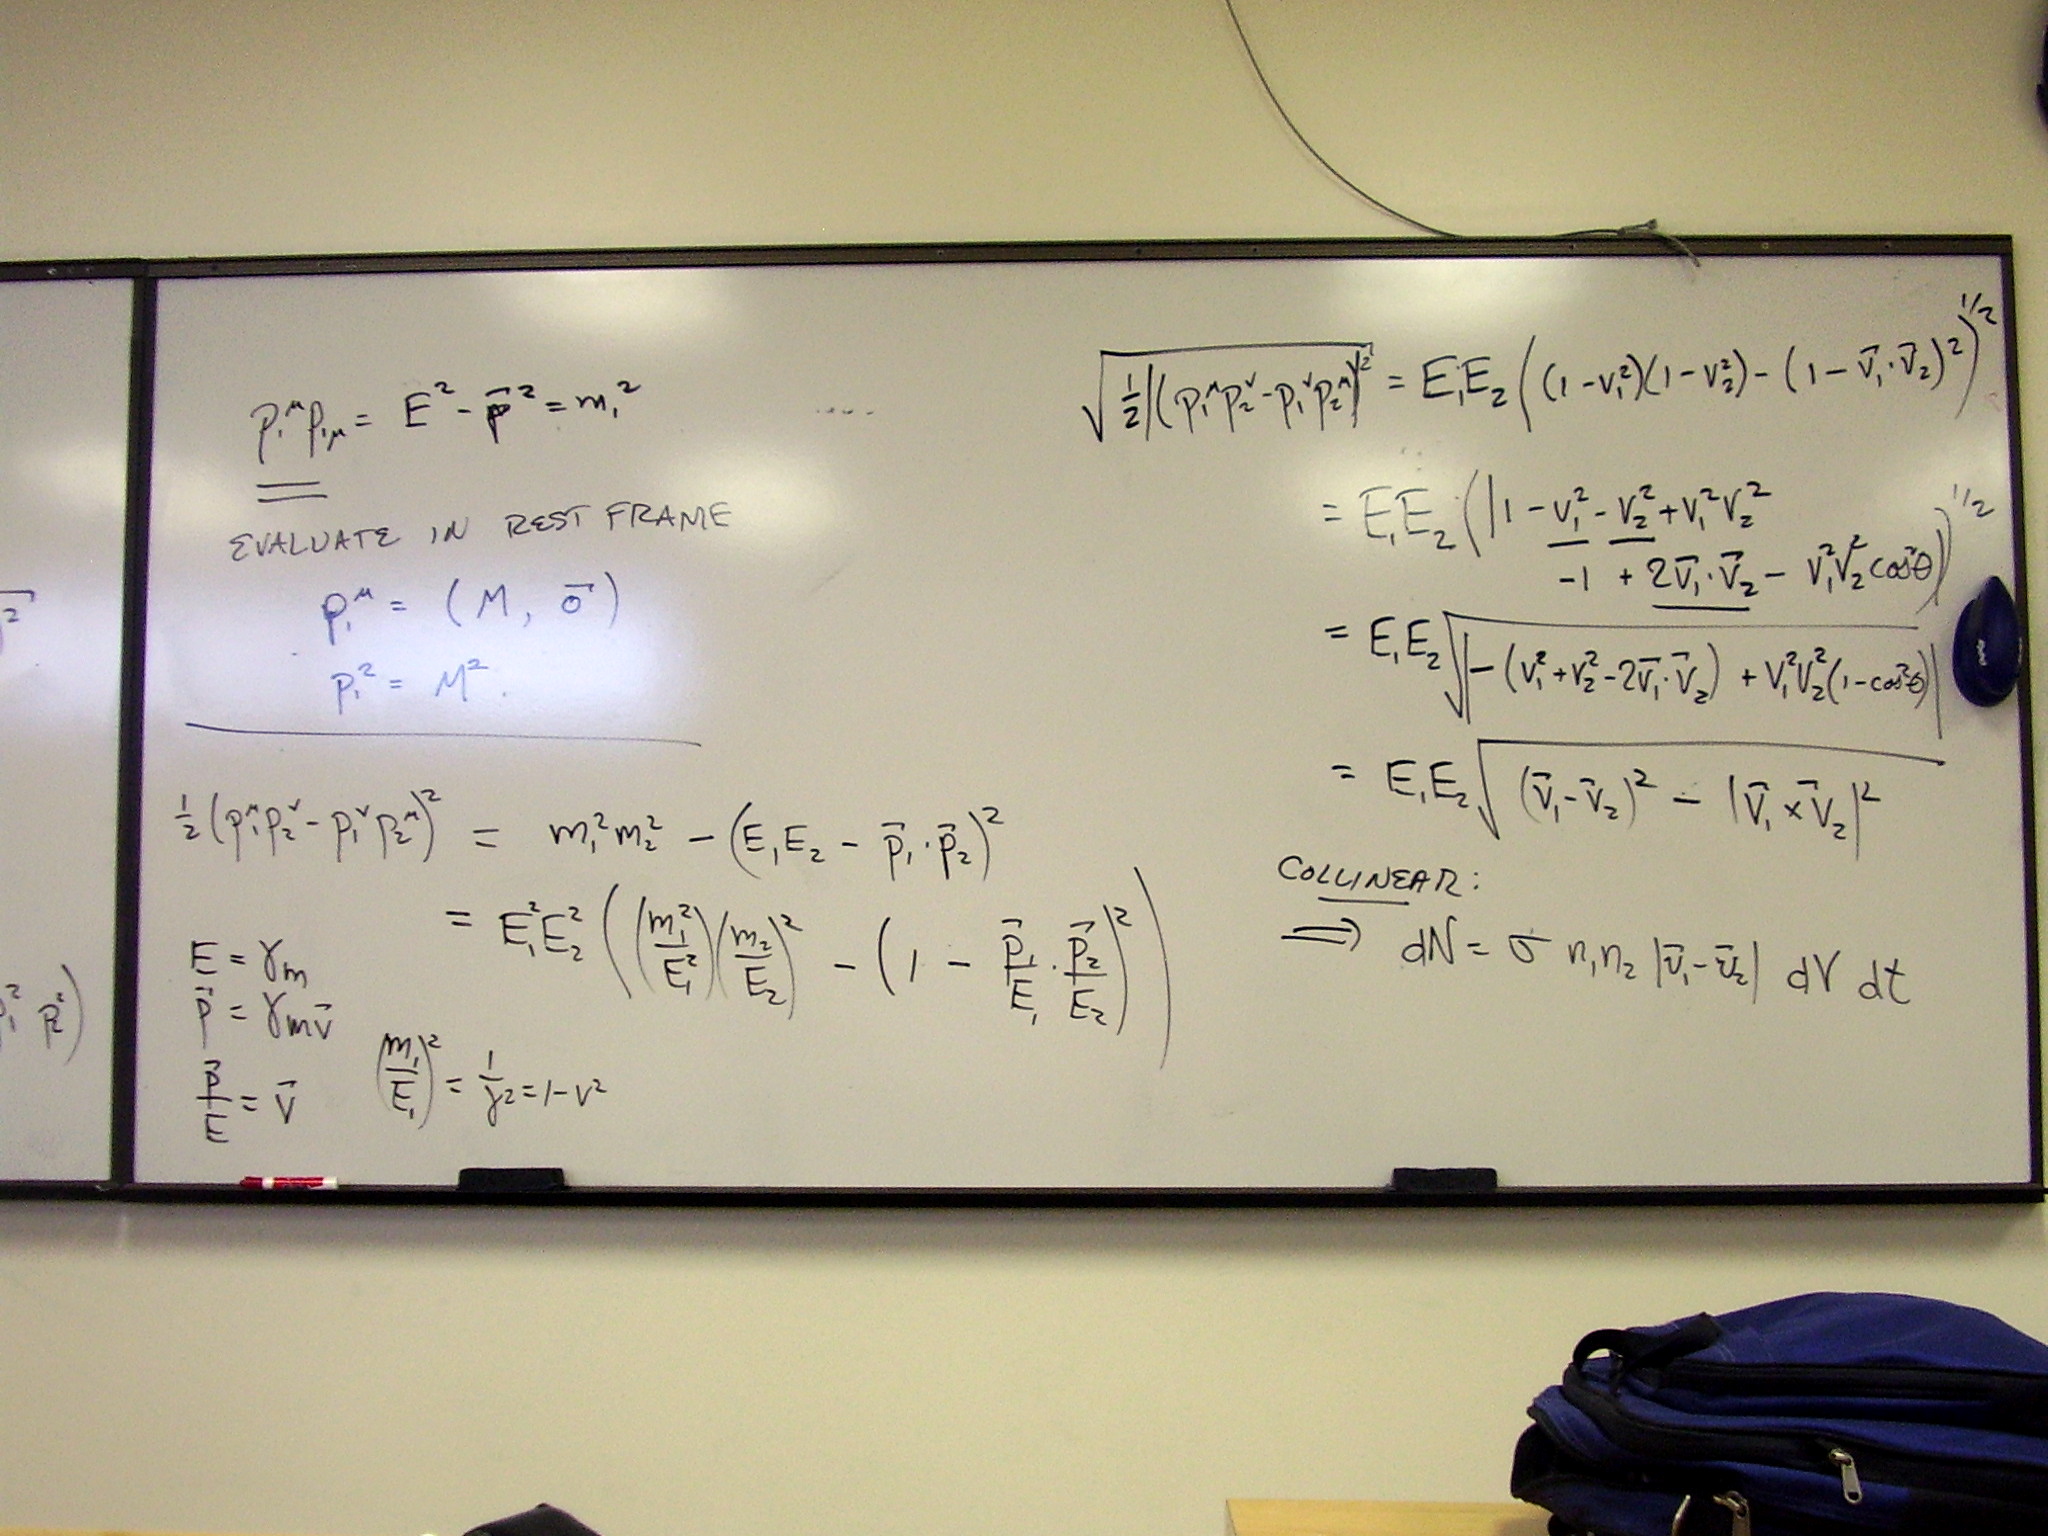 p₁^μ p₁μ = E² - p⃗² = m₁²
EVALUATE IN REST FRAME
p₁^μ = (M, 0⃗)
p₁² = M².
½(p₁^μ p₂^ν - p₁^ν p₂^μ)² = m₁²m₂² - (E₁E₂ - p⃗₁·p⃗₂)²
= E₁²E₂² ((m₁²/E₁²)(m₂/E₂)² - (1 - p⃗₁/E₁ · p⃗₂/E₂)²)
E = γm
p⃗ = γmv⃗
p⃗/E = v⃗
(m₁/E₁)² = 1/γ² = 1-v²
√½|(p₁^μ p₂^ν - p₁^ν p₂^μ)|² = E₁E₂((1-v₁²)(1-v₂²) - (1-v⃗₁·v⃗₂)²)^1/2
= E₁E₂(|1 - v₁² - v₂² + v₁²v₂²
-1 + 2v⃗₁·v⃗₂ - v₁²v₂² cos²θ|)^1/2
= E₁E₂√|-(v₁²+v₂²-2v⃗₁·v⃗₂) + v₁²v₂²(1-cos²θ)|
= E₁E₂√(v⃗₁-v⃗₂)² - |v⃗₁×v⃗₂|²
COLLINEAR:
⟹ dN = σ n₁n₂ |v⃗₁-v⃗₂| dV dt